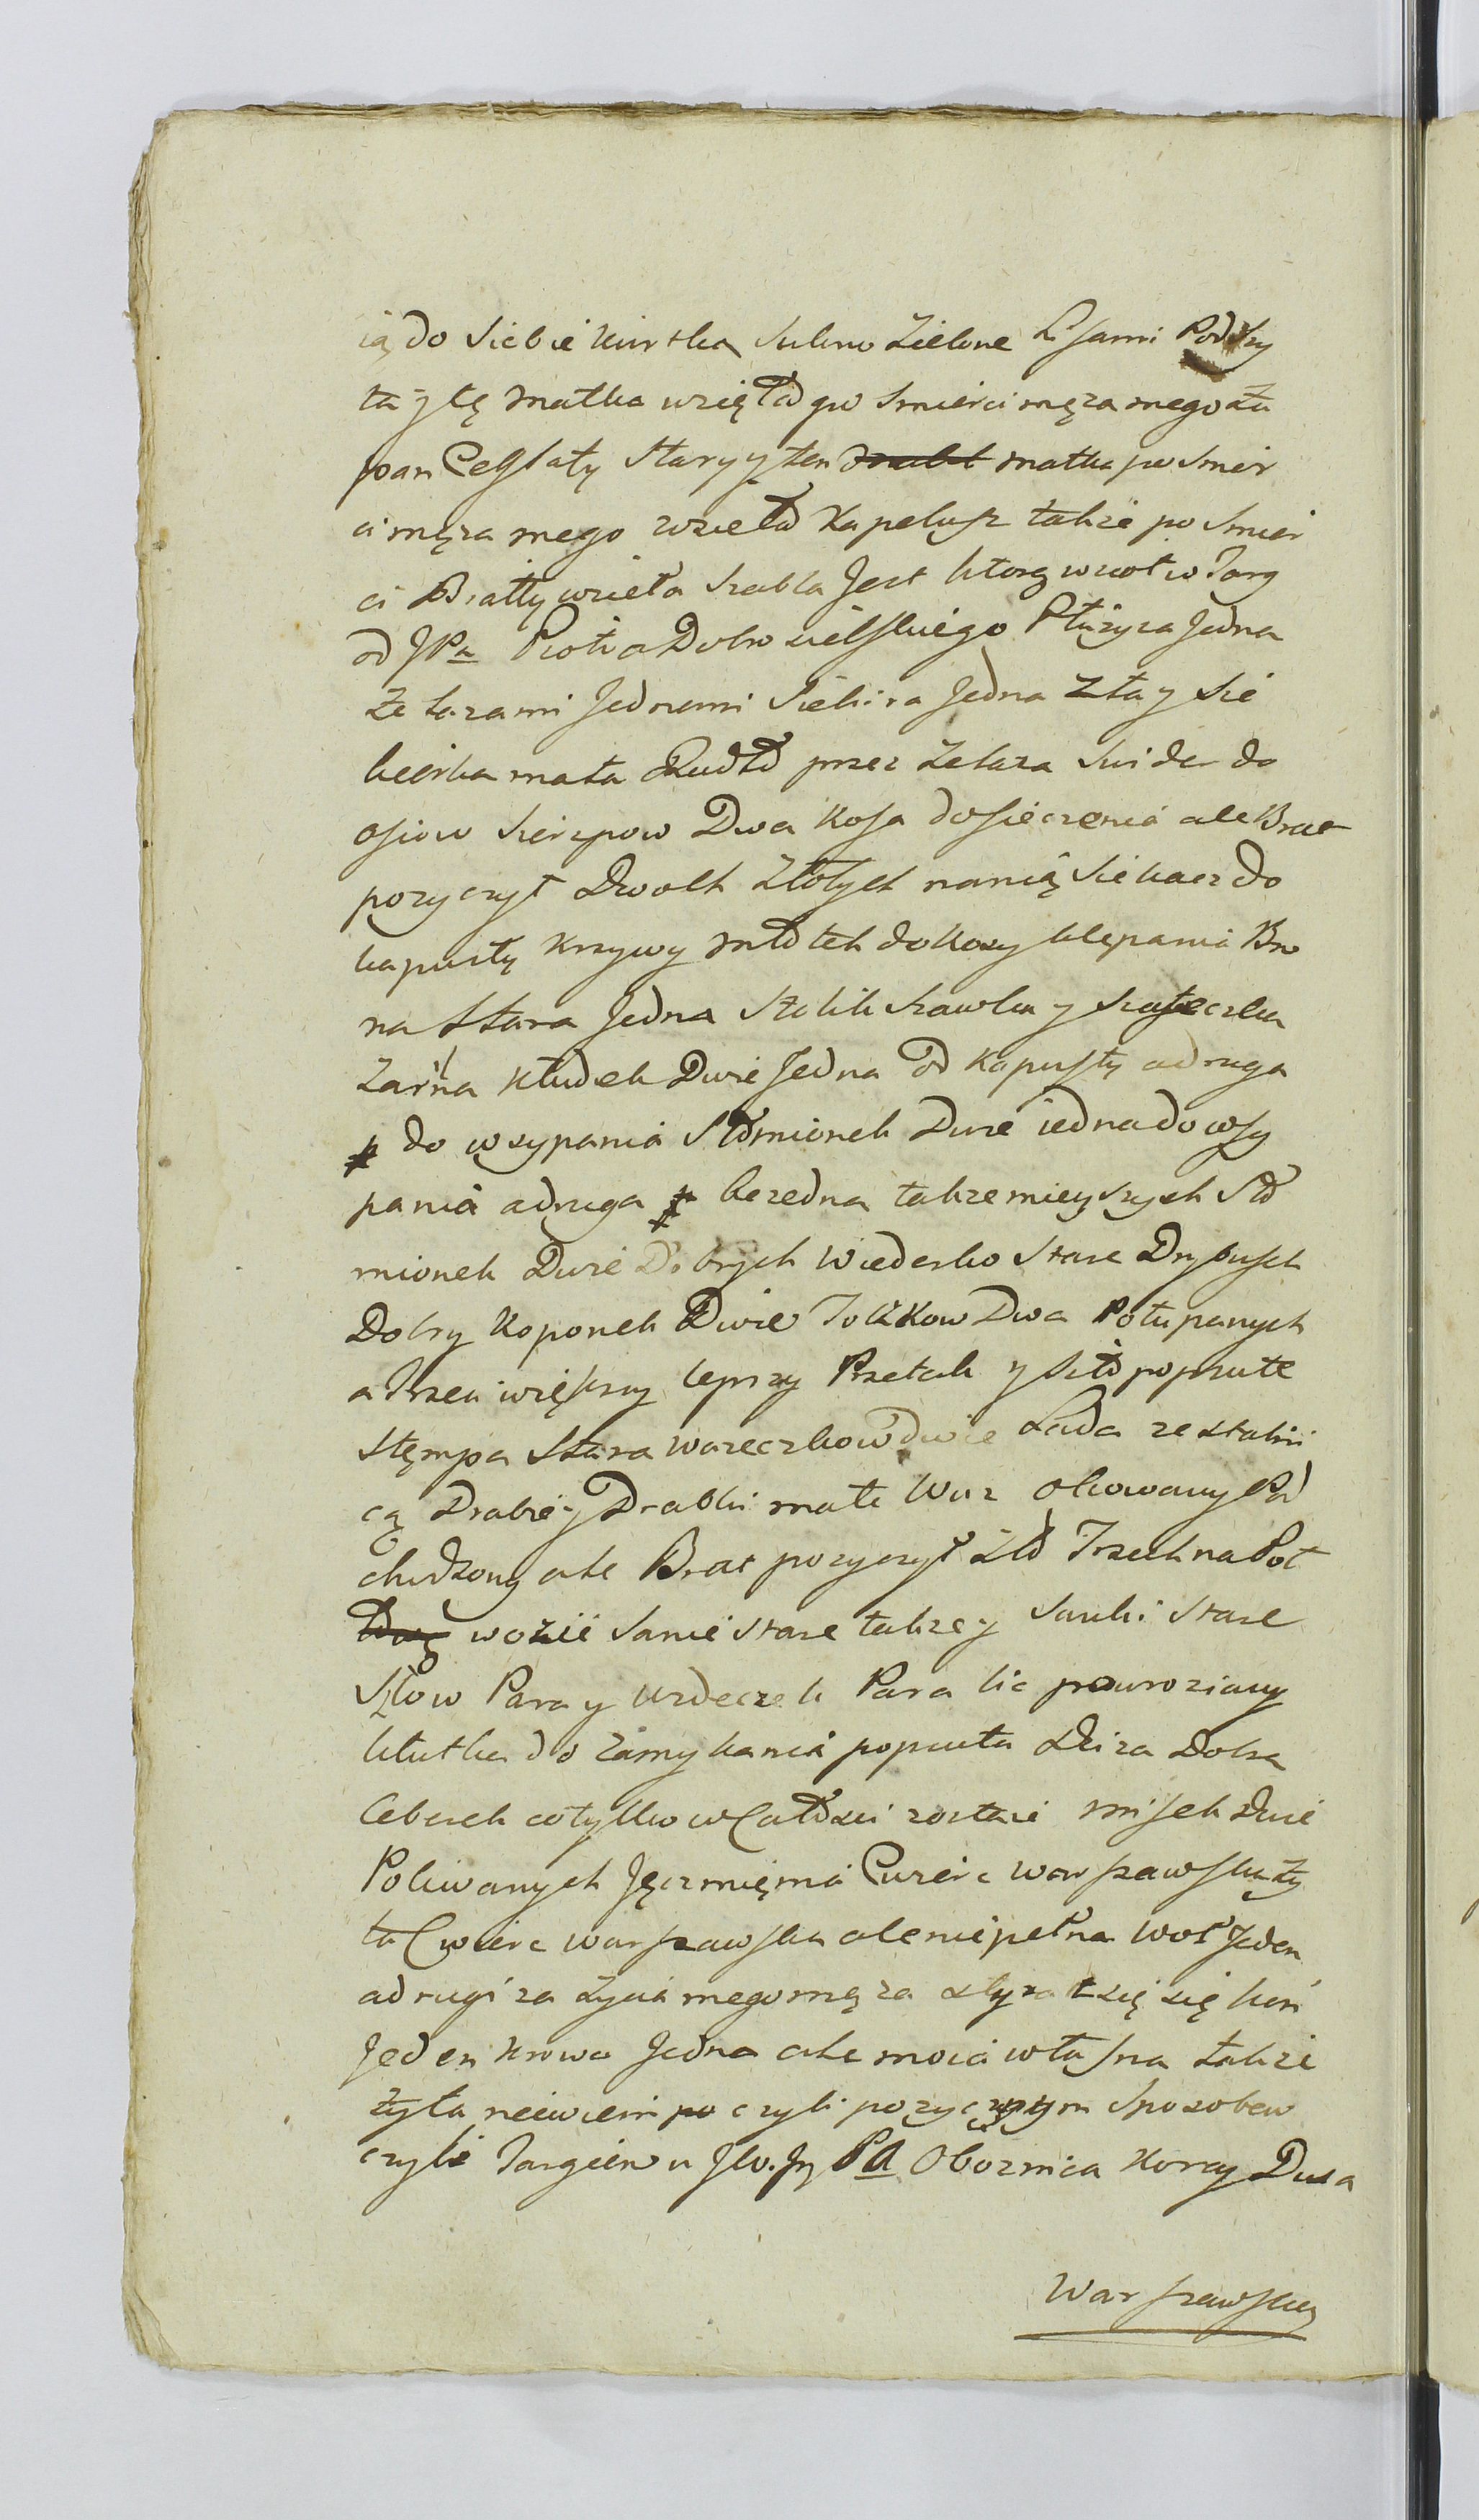 ią do siebie kurtka sukno Zielone Lisami Podszy
ta y tę matka wzięła po smierci męża mego żu
pan Ceglaty stary y ten matka po smier
ci męża mego wzieła Kapelusz także po smier
ci Bratty wzieła szabla Jest którą wzioł w Targ
od JPa Piotra Dobrosielskiego Płużyca Jedna
Zelazami Jednemi Siekira Jedna Zła y sie
kierka mała Radło przez żelaza swider do
osiow sierzpow Dwa Kosa do sieczenia ale Brat
pozyczył Dwoch Złotych na nią siekacz do
kapusty Krzywy młotek do Kosy klepania Bro
na stara Jedna stolik ławka y szafeczka
Zarna Kłudek Dwie Jedna od Kapusty a druga
# do wsypania słomionek Dwie iedna do wsy
pania a druga # bezedna także mieyszych sło
mionek Dwie Dobrych Wiederko stare Drybusek
Dobry Koponek Dwie Tołkow Dwa Połupanych
a Trzeci większy lepszy Przetak y sito popsute
stęmpa stara woreczkow dwie Lada ze stalni
cą Drabie y Drabki małe Wuz okowany Pod
chudzony ale Brat pozyczył Zło Trzech na Poł
wozie sanie stare także y sanki stare
szlow Para y uzdeczek Para lic powroziany
kłutka do zamykania popsuta Dzieza Dobra
Ceberek co tylko w Całosci zostaie misek Dwie
Poliwanych Jęczmięnia Cwierc warszawska ży
ta Cwierc warszawska ale nie pełna woł Jeden
a drugi za życia mego męża styrał się koń
Jeden Krowa Jedna ale moia własna także
żyta niewiem po czyli pozycznym sposobem
czyli Targiem u JW. Jm Pa Oboznica Korcy Dwa
Warszawskich